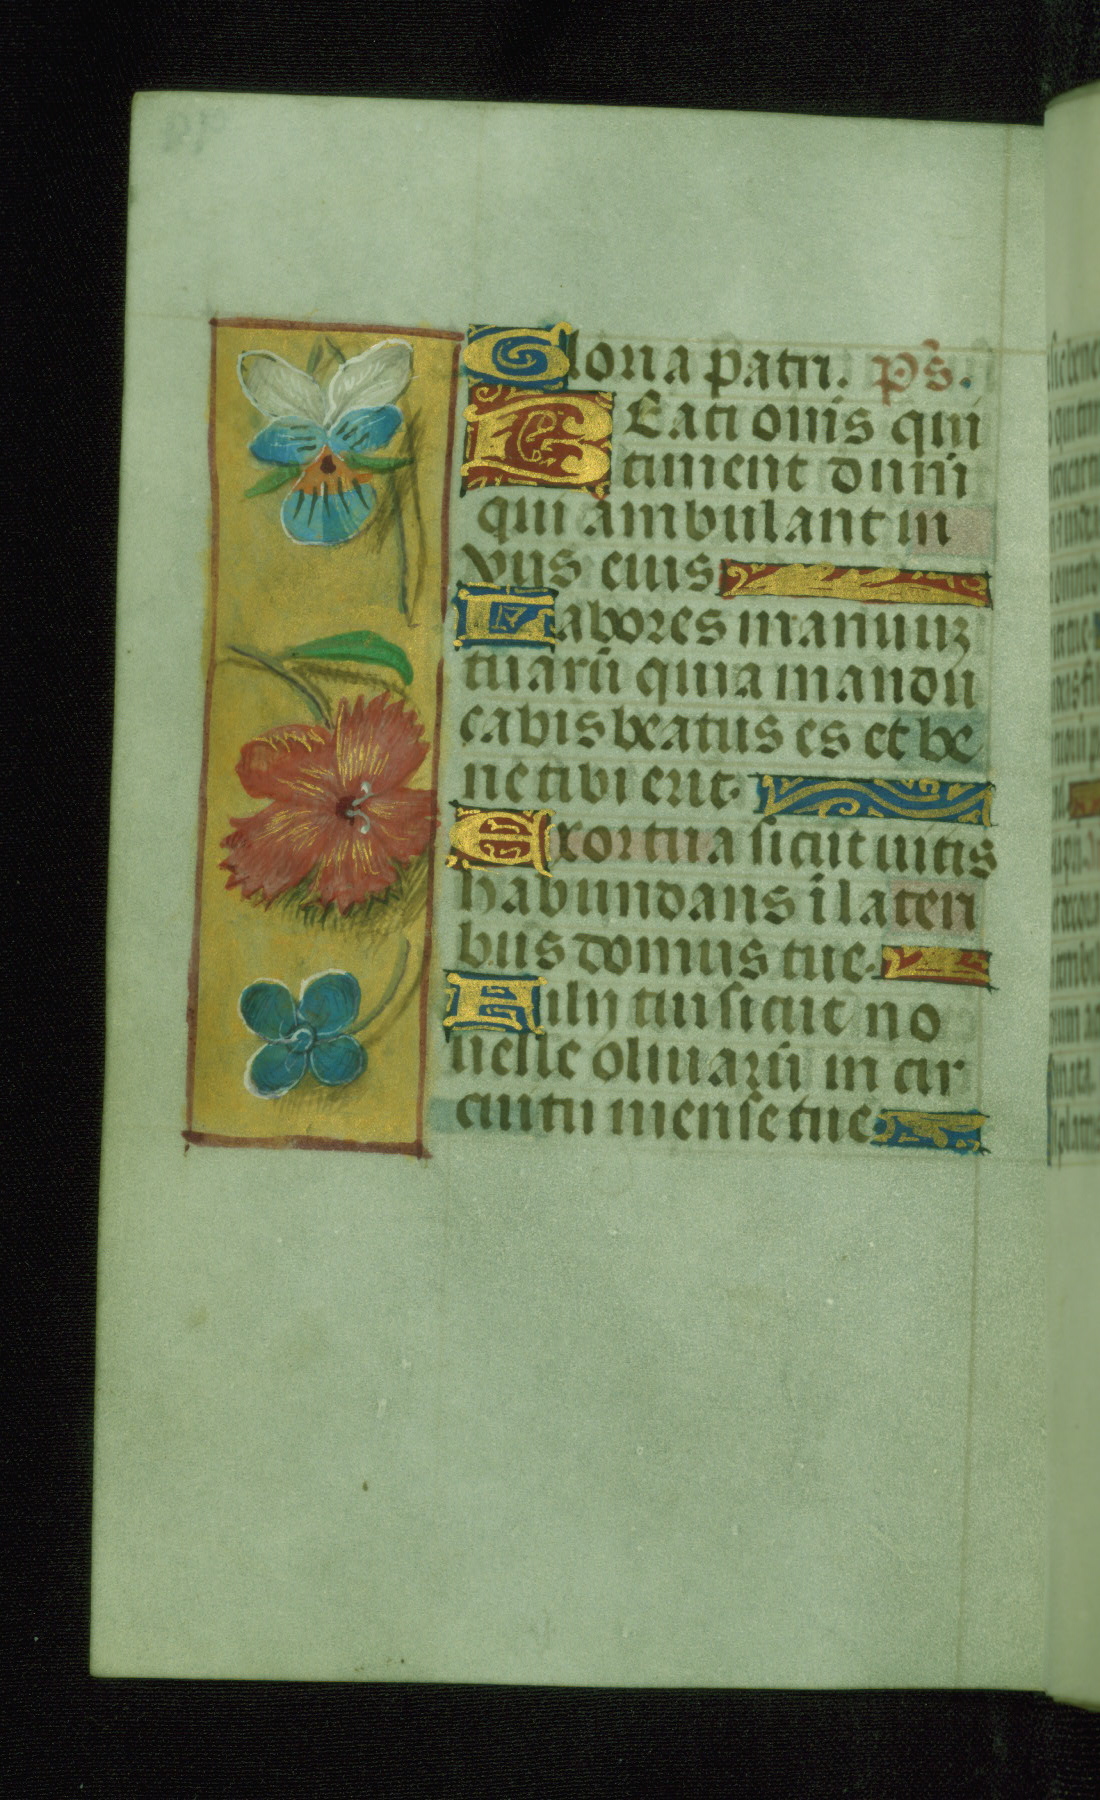 Gloria patri. ps̄.
BEati om̄s qui
timent dūm
qui ambulant in
vijs eius
Labores manuuʒ
tuarū quia mandu
cabis beatus es et be
ne tibi erit.
Uxor tua sicut uitis
habundans ī lateri
bus domus tue.
Filij tui sicut no
uelle oliuarū in cir
cuitu mense tue.